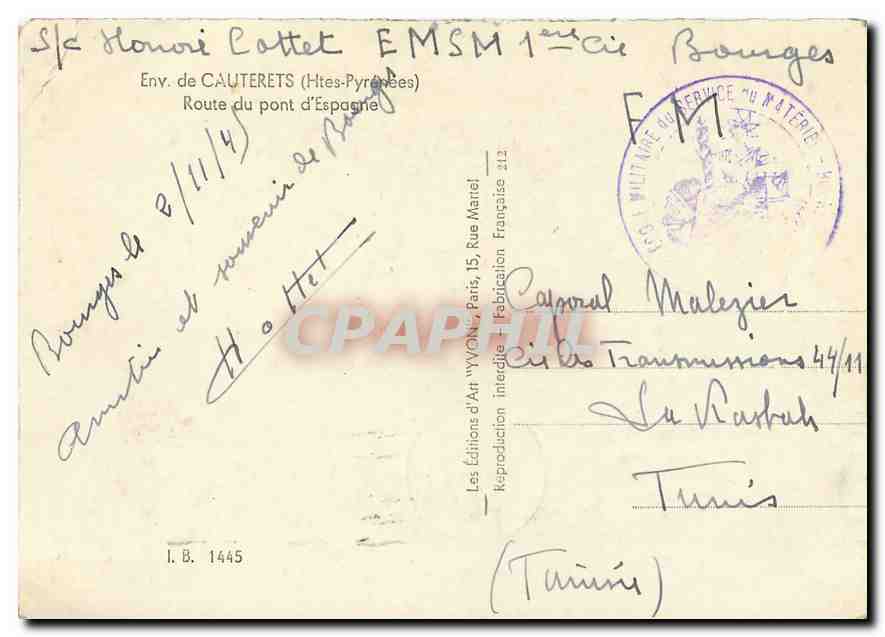 S/c Honoré Cottet EMSM 1ère Cie Bourges
Env. de CAUTERETS (Htes-Pyrénées)
Route du pont d'Espagne
FM
ECOLE MILITAIRE DU SERVICE DU MATÉRIEL
Bourges le 2/11/45
Amitié et souvenir de Bourges
Les Éditions d'Art "YVON", Paris, 15, Rue Martel
Reproduction interdite - Fabrication Française 212
Caporal Malezier
Cie des Transmissions 44/11
La Kasbah
Tunis
(Tunisie)
I. B. 1445
CPAPHIL